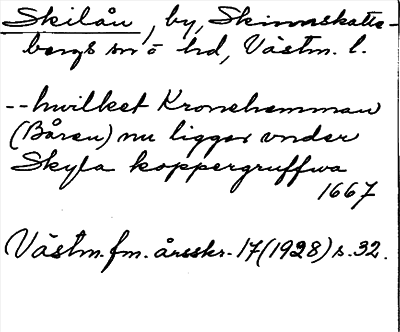 Skilån, by, Skinnskatte-
bergs sn o hd, Västm. l.
--hwilket Kronehemman
(Båren) nu ligger vnder
Skyla koppergruffwa
1667
Västm.fm. årsskr. 17(1928) s. 32.